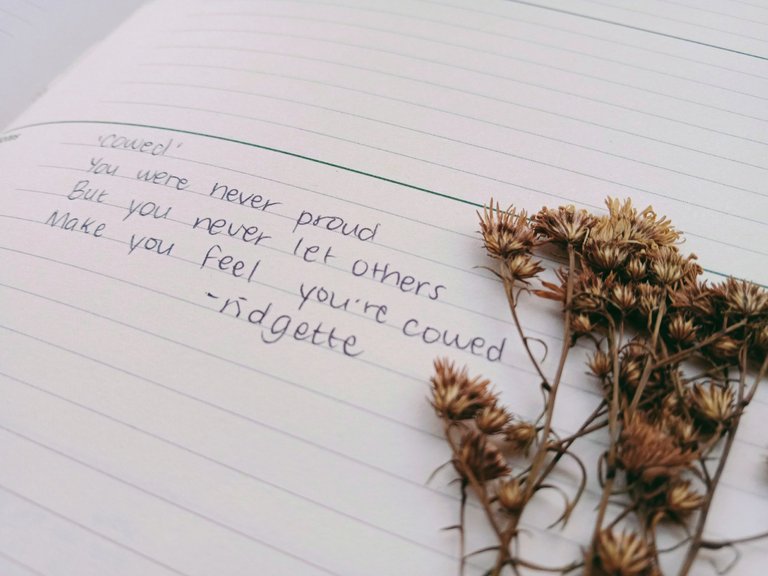 'cowed'
You were never proud
But you never let others
Make you feel you're cowed
-ridgette